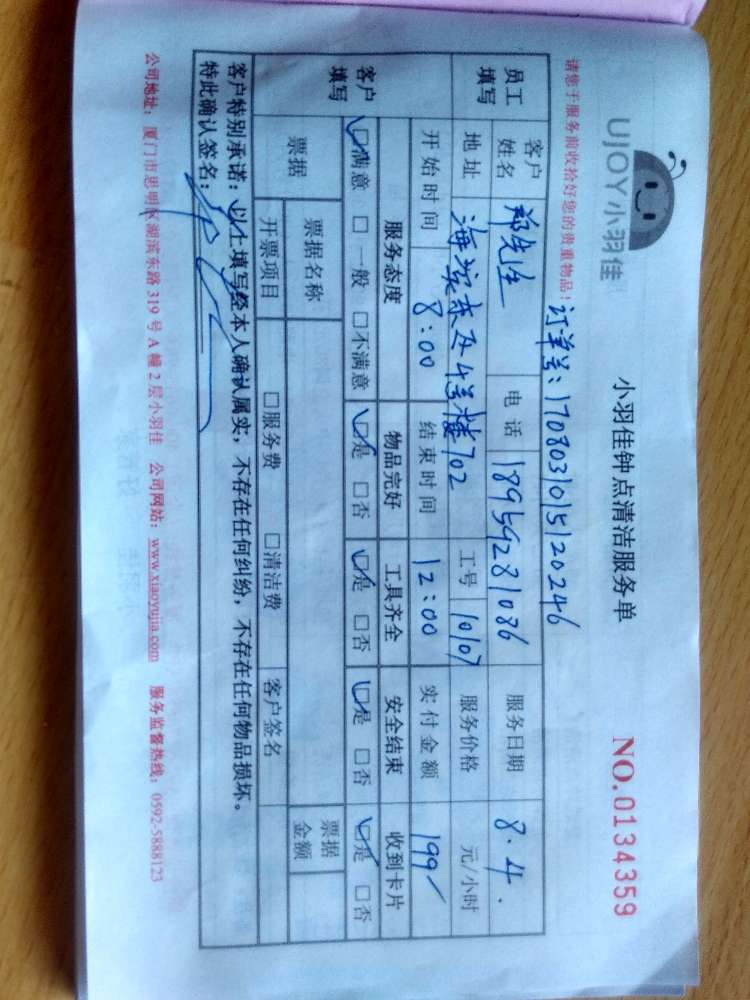 UJOY小羽佳
小羽佳钟点清洁服务单
NO.0134359
请您于服务前收拾好您的贵重物品!
订单号:1708031015120246
员工填写
客户姓名 郑先生 电话 18959281086 服务日期 8.4.
地址 海滨东区4号楼702 工号 10107 服务价格 元/小时
开始时间 8:00 结束时间 12:00 实付金额 199
客户填写
服务态度 物品完好 工具齐全 安全结束 收到卡片
☑满意 □一般 □不满意 ☑是 □否 ☑是 □否 ☑是 □否 ☑是 □否
票据 票据名称 票据金额
开票项目 □服务费 □清洁费 客户签名
客户特别承诺:以上填写经本人确认属实,不存在任何纠纷,不存在任何物品损坏。
特此确认签名:
公司地址:厦门市思明区湖滨东路319号A幢2层小羽佳 公司网站:www.xiaoyujia.com 服务监督热线:0592-5888123